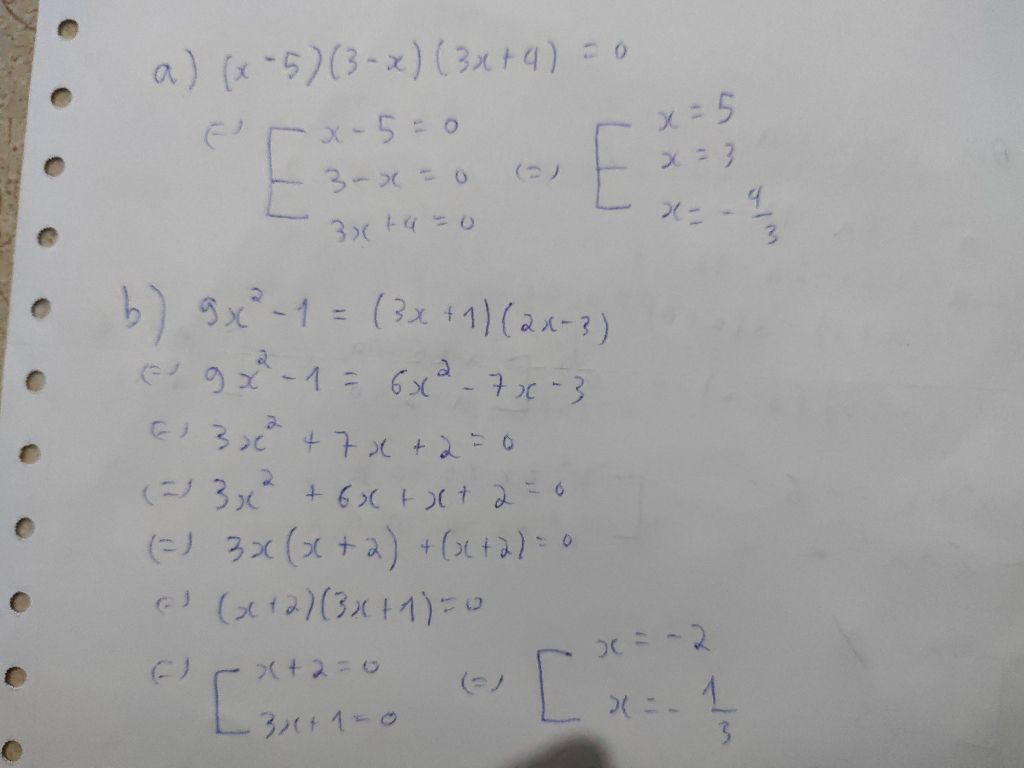 a) (x - 5)(3 - x)(3x + 4) = 0
(=) [ x - 5 = 0 (=) [ x = 5
3 - x = 0 x = 3
3x + 4 = 0 x = - 4/3
b) 9x² - 1 = (3x + 1)(2x - 3)
(=) 9x² - 1 = 6x² - 7x - 3
(=) 3x² + 7x + 2 = 0
(=) 3x² + 6x + x + 2 = 0
(=) 3x(x + 2) + (x + 2) = 0
(=) (x + 2)(3x + 1) = 0
(=) [ x + 2 = 0 (=) [ x = -2
3x + 1 = 0 x = - 1/3